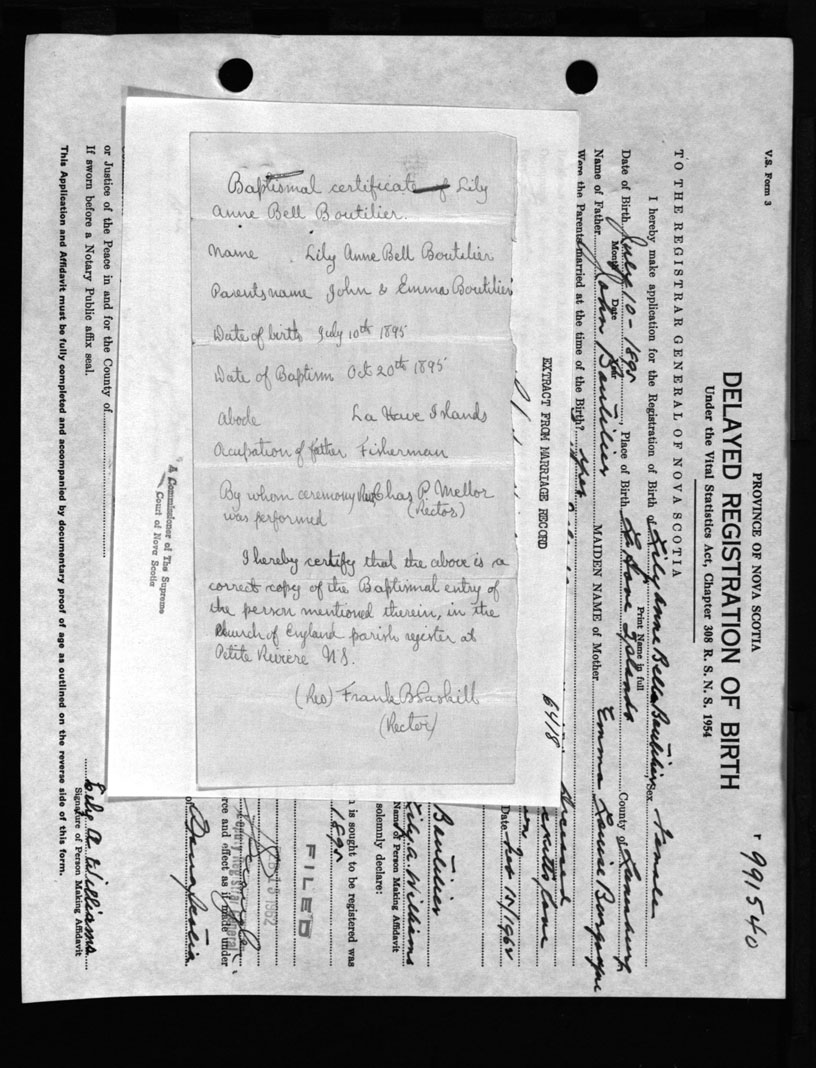 Baptismal certificate of Lily
Anne Bell Boutilier.
Name Lily Anne Bell Boutilier
Parents name John & Emma Boutilier
Date of birth July 10th 1895
Date of Baptism Oct 20th 1895
Abode La Have Islands
Ocupation of father Fisherman
By whom ceremony Rev Chas P. Mellor
was performed (Rector)
I hereby certify that the above is a
correct copy of the Baptismal entry of
the person mentioned therein, in the
Church of England parish register at
Petite Riviere N.S.
(Rev) Frank B
(Rector)
EXTRACT FROM MARRIAGE RECORD
6418
A Commissioner of The Supreme
Court of Nova Scotia
V.S. Form 3
PROVINCE OF NOVA SCOTIA
991540
DELAYED REGISTRATION OF BIRTH
Under the Vital Statistics Act, Chapter 308 R. S. N. S. 1954
TO THE REGISTRAR GENERAL OF NOVA SCOTIA
I hereby make application for the Registration of Birth of Lily Anne Bella Boutilier, Sex Female
Print Name in full
Date of Birth July 10 - 1895, Place of Birth La Have Islands County of Lunenburg
Month Date Year
Name of Father John Boutilier MAIDEN NAME of Mother Emma Louise
Were the Parents married at the time of the Birth? Yes
Deceased
Date 1962
Boutilier
Lily A. Williams
Name of Person Making Affidavit
solemnly declare:
n is sought to be registered was
1895
FILED
FEB 1962
Deputy Registrar General
rce and effect as if made under
of Nova Scotia
or Justice of the Peace in and for the County of
If sworn before a Notary Public affix seal.
Lily A Williams
Signature of Person Making Affidavit
This Application and Affidavit must be fully completed and accompanied by documentary proof of age as outlined on the reverse side of this form.